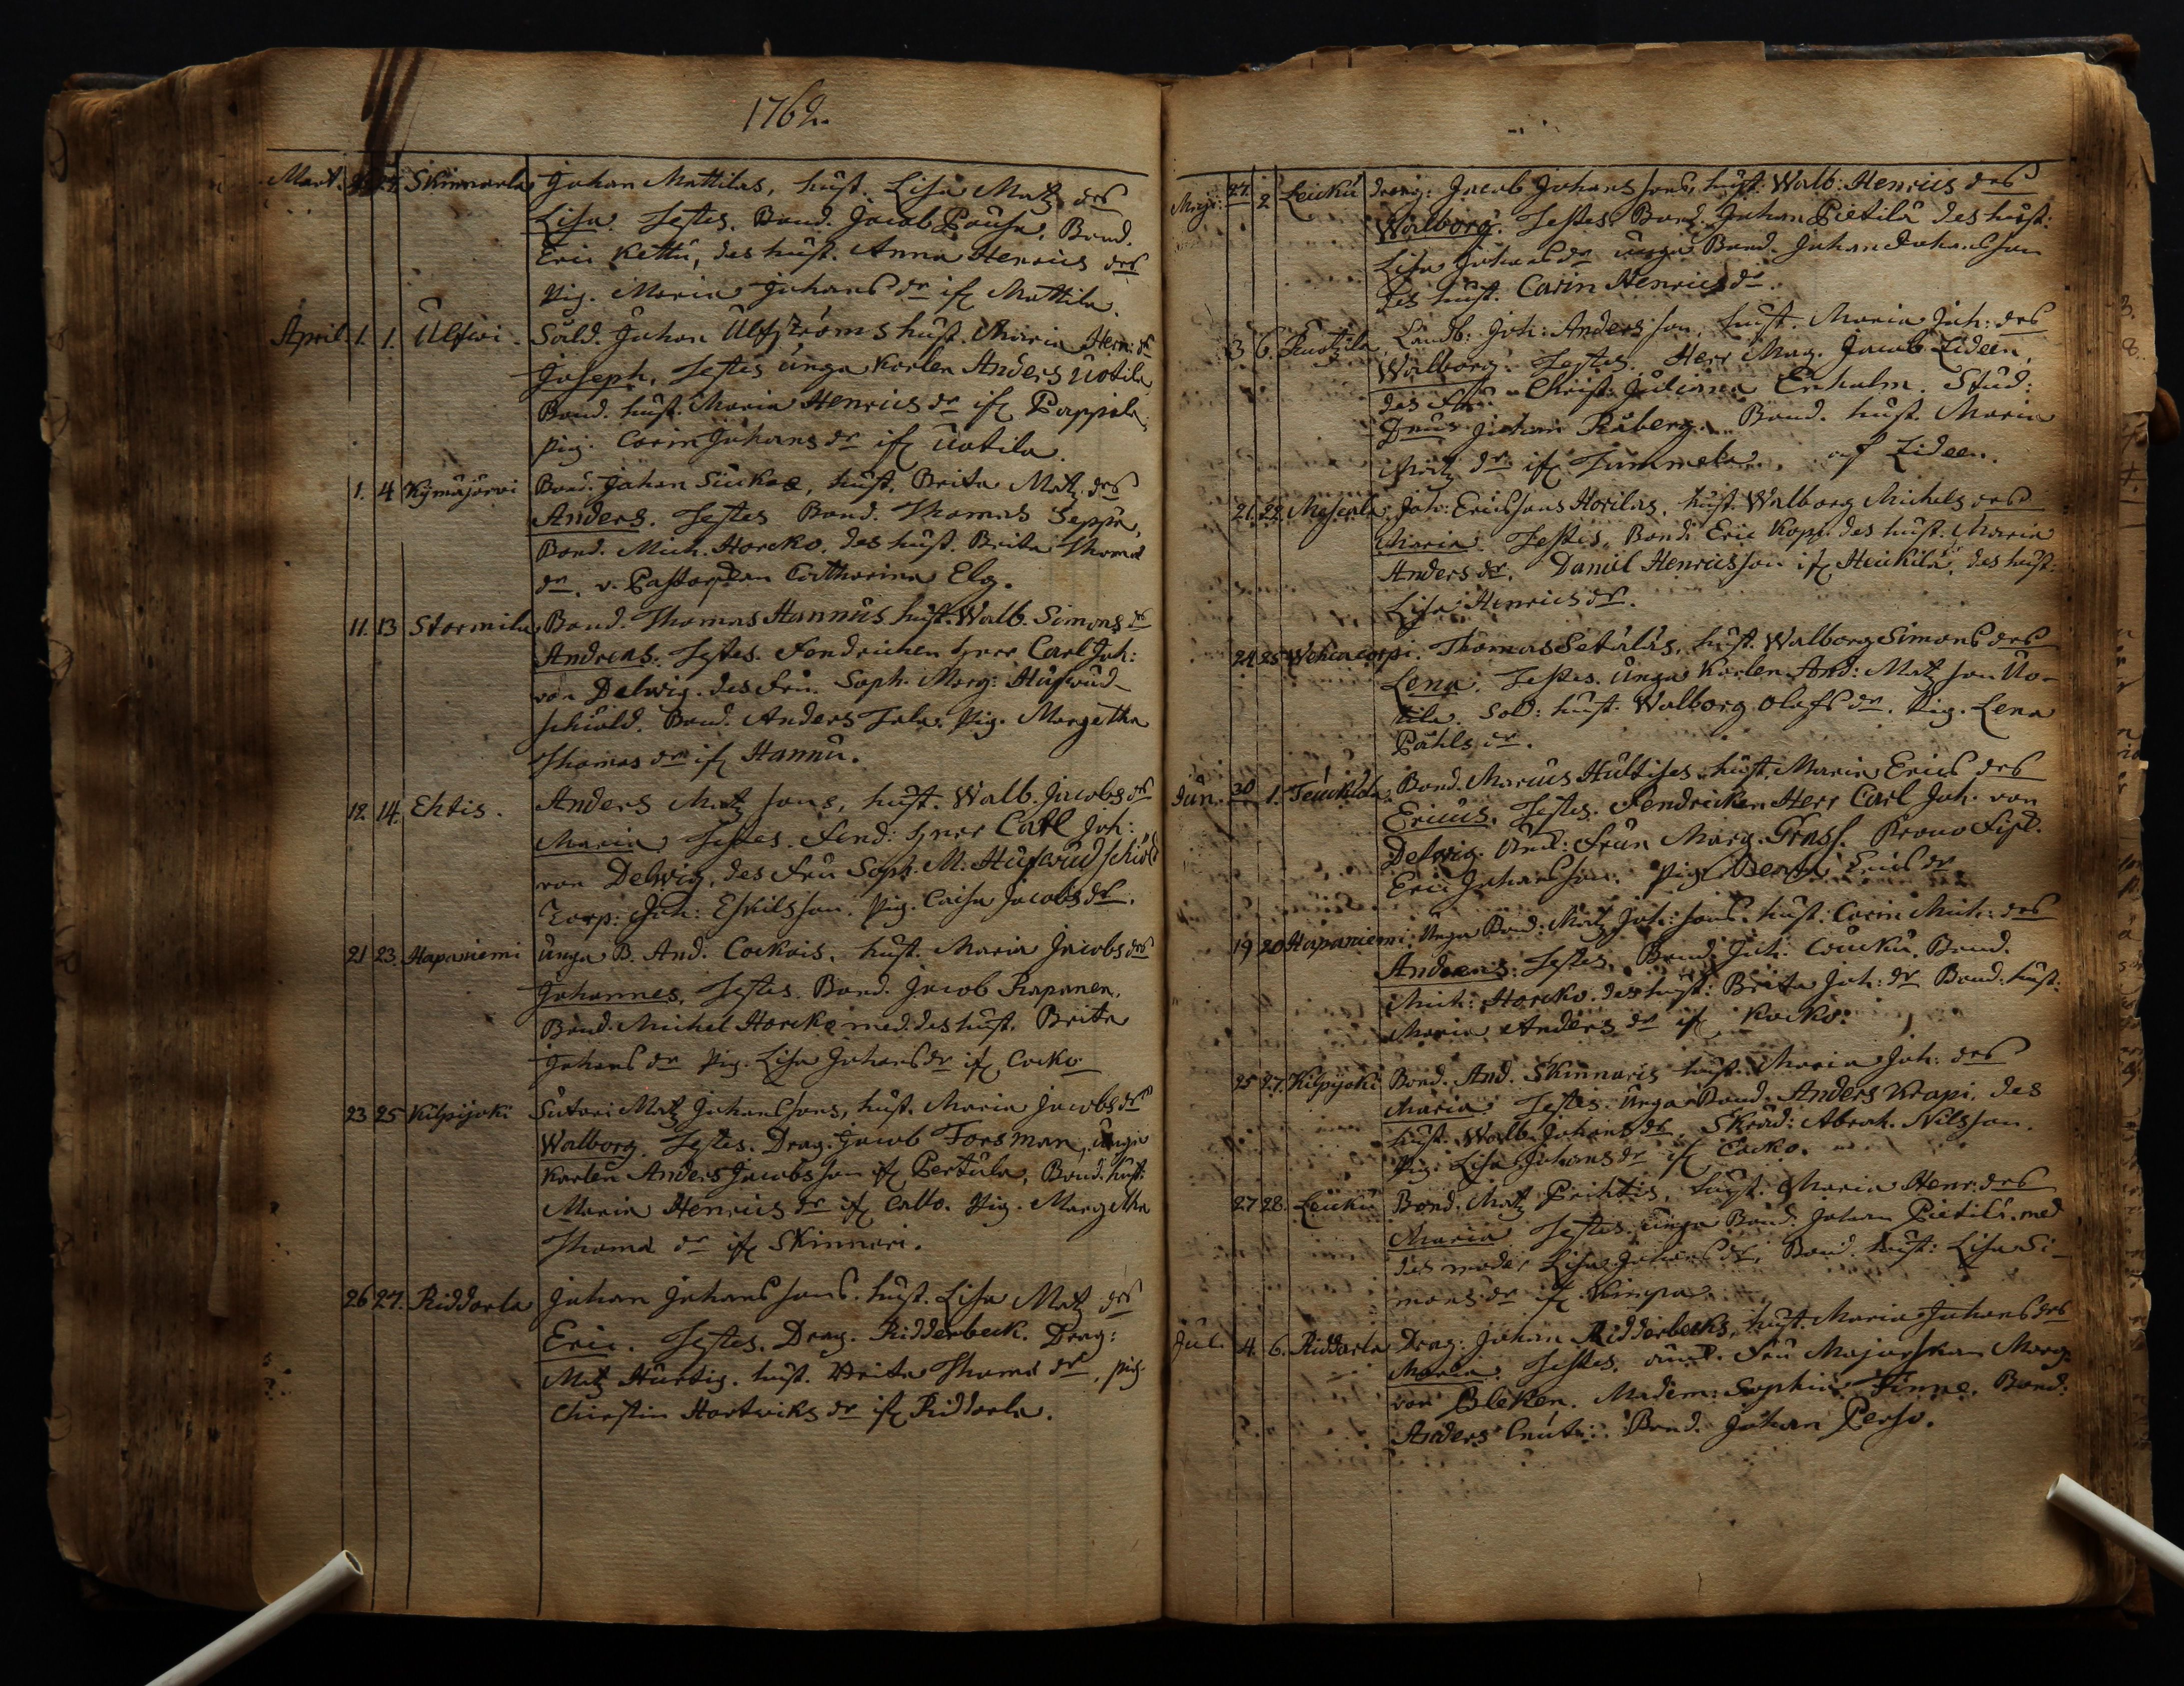 1762.
Mart. Skinnarla Johan Mattilas, hust. Lisa Matz drs
Lisa. Testes. Bond. Jacob Pausa. Bond.
Eric Kettu, des hust. Anna Henrics dr
Pig. Maria Johans dr if. Mattila.
April. 1. 1. Ulfwi. Sold. Johan Ulfströms hust. Maria Hen: dr
Joseph. Testes unga Karlen Anders Uotila
Bond. hust. Maria Henrics dr if. Pappila
Pig. Carin Johans dr if. Uotila.
1. 4 Kymäjärvi Bond. Johan Suikas, hust. Brita Matz drs
Anders. Testes Bond. Thomas Seppä,
Bond. Mich. Horcko. des hust. Brita Thomæ
dr. v. Pastorskan Catharina Elg.
11. 13 Stormila Bond. Thomas Hannus hust. Walb. Simons dr
Andreas. Testes. Fendrichen Herr Carl Joh:
von Delwig. des Fru. Soph. Marg: Hufwud-
schiöld. Bond. Anders Tala. Pig. Margetha
Thomas dr if. Hannu.
12. 14. Ehtis. Anders Matz sons, hust. Walb. Jacobs dr
Maria Testes. Fend: Herr Carl Joh:
von Delwig, des Fru Soph. M. Hufwudschiöld
Torp: Joh: Eskilsson. Pig. Caisa Jacobs dr.
21 23. Hapaniemi unga B. And. Cockois. hust. Maria Jacobs drs
Johannes. Testes. Bond. Jacob Rapanen.
Bond. Michel Horcko med des hust. Brita
Johans dr Pig. Lisa Johans dr if. Cocko
23 25 Kilpijoki Sutori Matz Johanssons, hust. Maria Jacobs dr
Walborg. Testes. Drag. Jacob Forsman, unga
Karlen Anders Jacobsson if. Pertula, Bond. hust.
Maria Henrics dr if. Callo. Pig. Margetha
Thomæ dr if. Skinnari.
26 27. Riddarla Johan Johanssons. hust. Lisa Matz drs
Eric. Testes. Drag. Ridderbeck. Drag:
Matz Hurtig. hust. Brita Thomæ dr, pig.
Chirstin Hartwiks dr if. Riddarla.
Maji: 27. 2 Leucku Drag: Jacob Johans sons, hust. Walb: Henrics drs
Walborg. Testes. Bond. Johan Pietilä des hust:
Lisa Johans dr unga Bond. Johan Johansson
des hust. Carin Henrics dr.
3 6. Landb: Joh: Andersson, hust. Maria Joh: drs
Walborg. Testes. Herr Mag. Jacob Lideen,
des Christ: Juliana Enholm. Stud:
Johan Råberg. Bond. hust. Maria
Matz dr if. Tummela. af Lideen.
21. 22. Messala. Joh: Ericssons Horilas, hust. Walborg Michels drs
Maria. Testes. Bond. Eric Kopp. des hust. Maria
Anders dr. Daniel Henricsson if. Heickilä, des hust:
Lisa Henrics dr.
24 25 Wähäcorpi. Thomas Setäläs, hust. Walborg Simons drs
Lena. Testes. Unga Karlen And: Matz son Uo-
tila. Sold: hust. Walborg Olofs dr. Pig. Lena
Påhls dr.
Jun. 30 1. Teuckola Bond. Marcus Hultises hust. Maria Erics drs
Ericus. Testes. Fendricken Herr Carl Joh. von
Delwig. Und: Frun Marg. Grass. Provo Fisc.
Eric Johansson. Pig. Erics dr
19 20 Hapaniemi. Unga Bond. Matz Joh: sons. hust: Carin Mich: drs
Andreas. Testes. Bond. Joh. Bond.
Mich: Horcko. des hust: Brita Joh: dr Bond. hust:
Maria Anders dr if. Kocko.
25 27. Kilpijoki Bond. And. Skinnaris hust. Maria Joh: drs
Maria Testes. Unga Bond. Anders Krapi. des
hust. Walb. Johans dr. Skräd: Abrah. Nilsson.
Pig. Lisa Johans dr if. Cocko.
27 28. Leucku Bond. Matz Prihtis, hust. Maria Hen: drs
Maria Testes. Unga Bond. Johan Pietilä. med
des moder Lisa Johans dr, Bond. hust: Lisa Si-
mons dr if. Kimpa.
Jul. 4. 6. Riddarla Drag: Johan Ridderbecks, hust. Maria Johans drs
Maria. Testes. Fru Majorskan Marg.
von Bleken. Madem: Sophia Finne. Bond:
Anders Bond. Johan Perho.